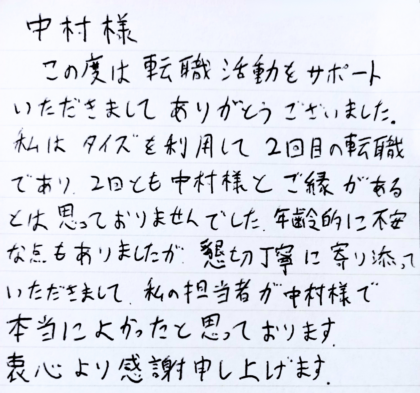 中村様
この度は転職活動をサポート
いただきましてありがとうございました。
私はタイズを利用して2回目の転職
であり、2回とも中村様とご縁がある
とは思っておりませんでした。年齢的に不安
な点もありましたが、懇切丁寧に寄り添って
いただきまして、私の担当者が中村様で
本当によかったと思っております。
衷心より感謝申し上げます。